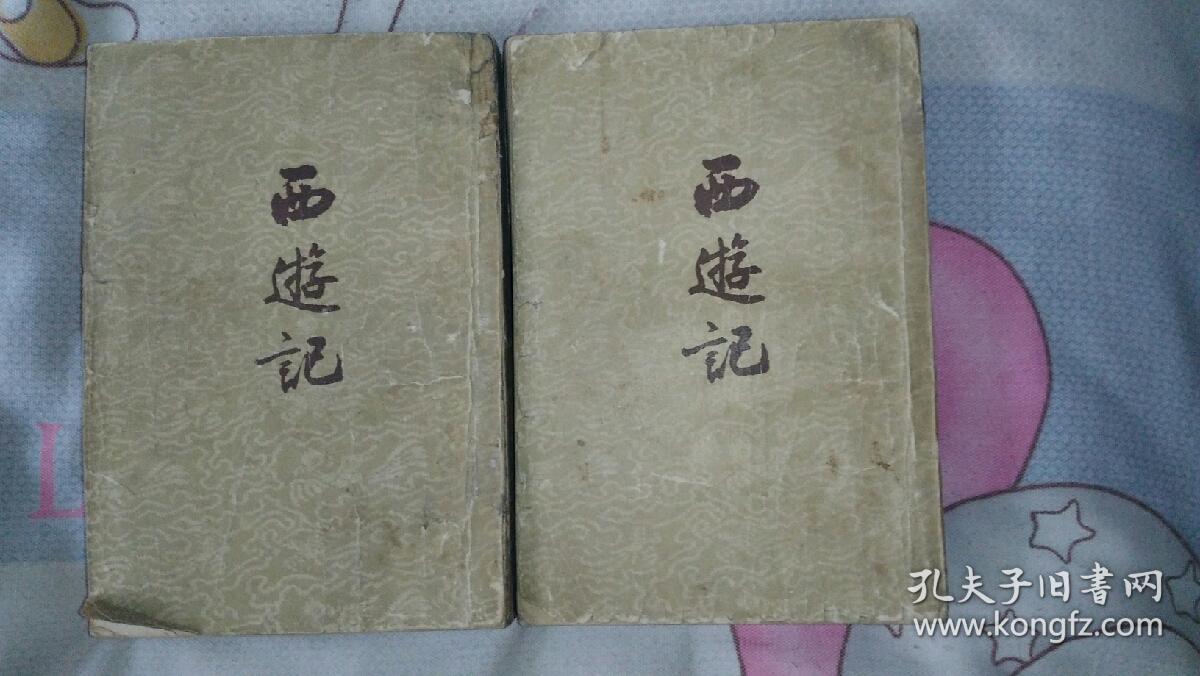 西遊記
西遊記
L
孔夫子旧書网
www.kongfz.com